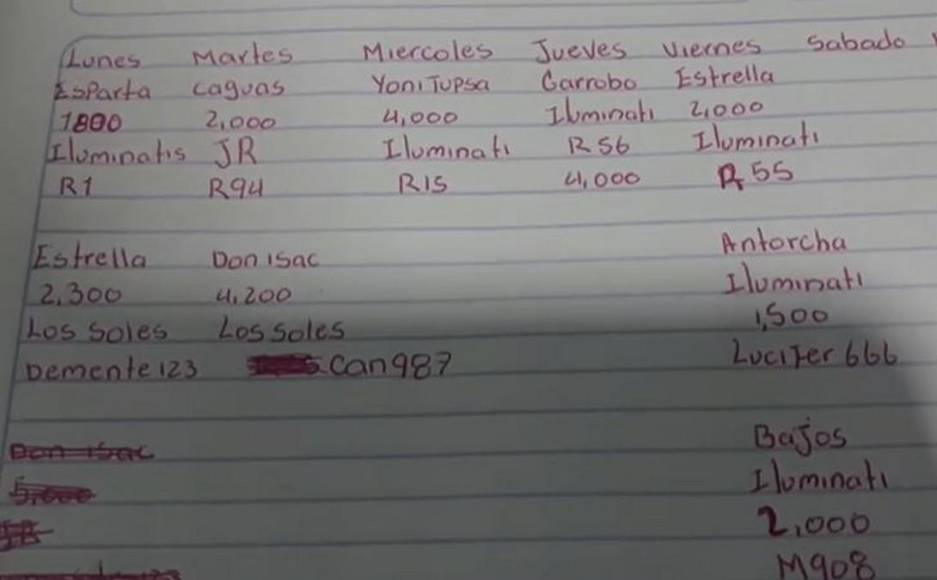 Lunes Martes Miercoles Jueves Viernes Sabado
Esparta Caguas Yoni Tupsa Garrobo Estrella
1800 2,000 4,000 Iluminati 2,000
Iluminatis JR Iluminati R56 Iluminati
R1 R94 R15 4,000 R55
Estrella Don isac Antorcha
2,300 4,200 Iluminati
Los Soles Los Soles 1,500
Demente 123 Can987 Lucifer 666
Don isac Bajos
5,000 Iluminati
2,000
M908